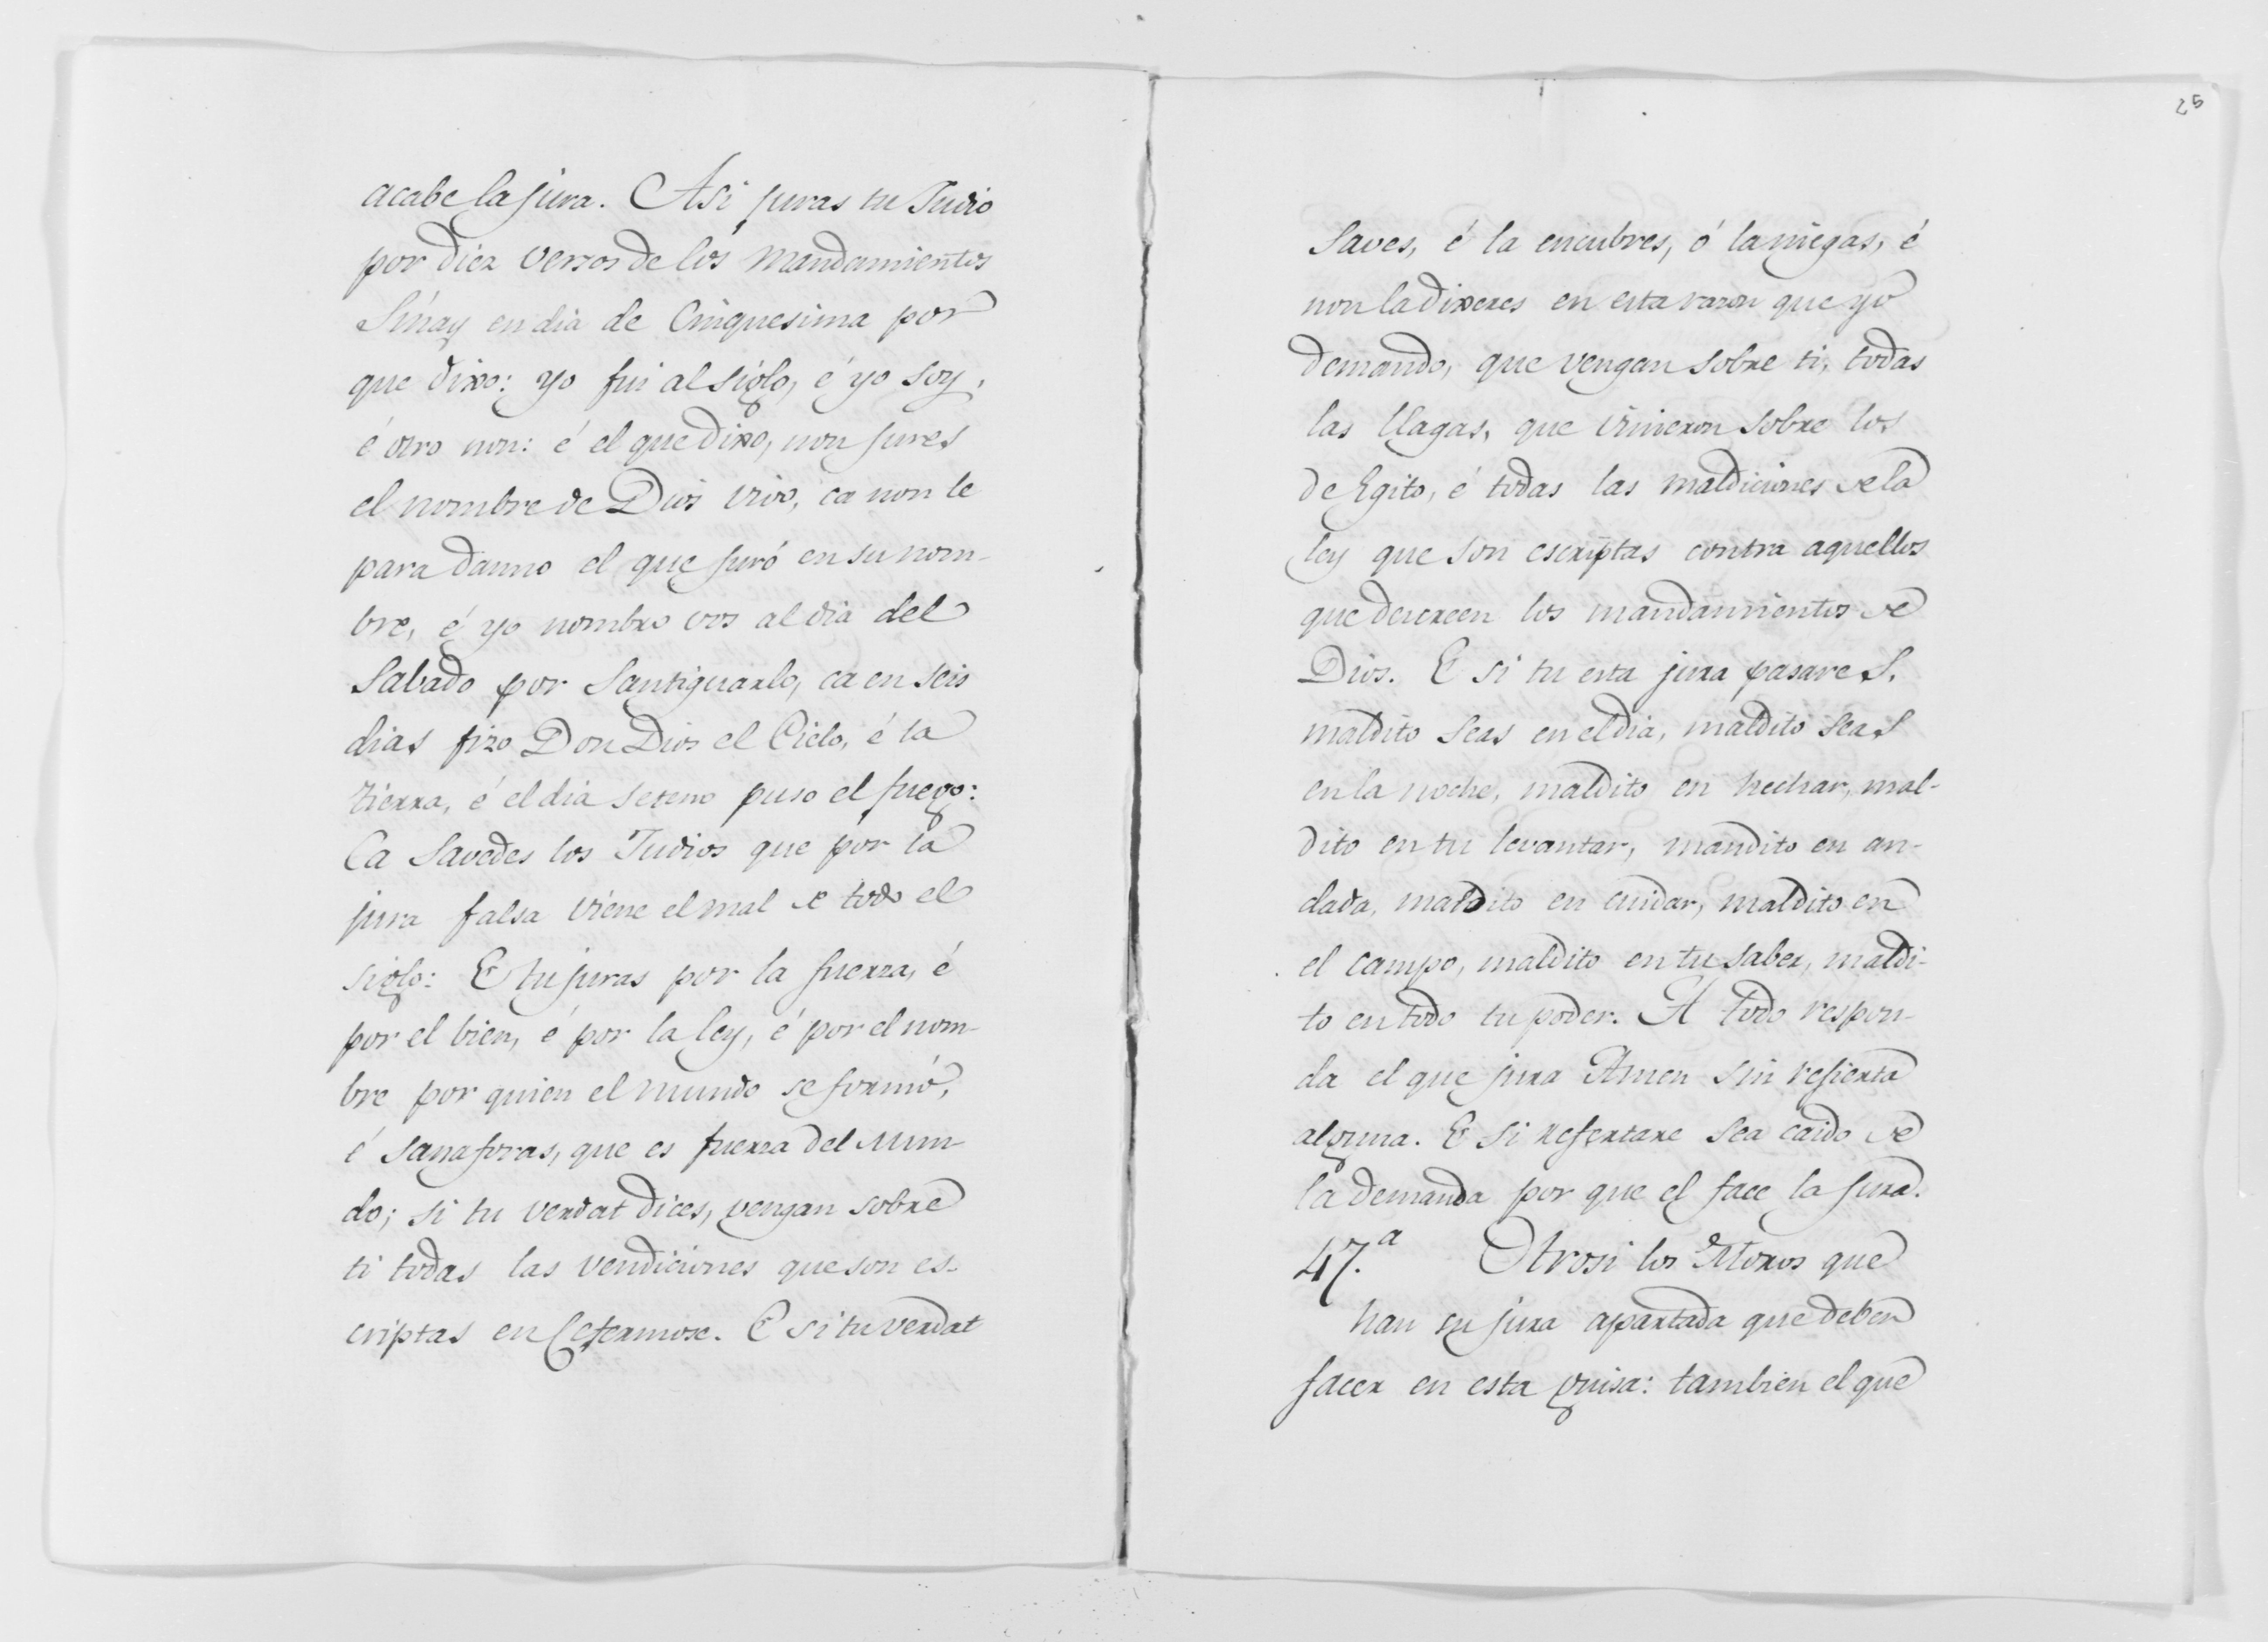 acabe la jura. Asi juras tu Judio
por diez versos de los Mandamientos
Sinay en dia de Cinquesima por
que dixo: yo fui al siglo, é yo soy,
é otro non: é el que dixo, non jures
el nombre de Dios vivo, ca non le
para danno el que juró en su nom-
bre, é yo nombro vos al dia del
Sabado por Santiguarlo, ca en seis
dias fizo Don Dios el Cielo, é la
tierra, é el dia seteno puso el fuego:
Ca Savedes los Judios que por la
jura falsa viene el mal de todo el
siglo: E tu juras por la fuerza, é
por el bien, é por la ley, é por el nom-
bre por quien el mundo se formó,
é Sanaforas, que es fuerza del Mun-
do; si tu verdat dices, vengan sobre
ti todas las vendiciones que son es-
criptas en Cefermose. E si tu verdat
25
Saves, é la encubres, ó la niegas, é
non la dixeres en esta razon que yo
demando, que vengan sobre ti, todas
las llagas, que vinieron sobre los
de Egito, é todas las maldiciones de la
ley que son escriptas contra aquellos
que descreen los mandamientos de
Dios. E si tu esta jura pasares,
maldito seas en el dia, maldito seas
en la noche, maldito en hechar, mal-
dito en tu levantar, mandito en an-
dada, maldito en cuidar, maldito en
el campo, maldito en tu saber, maldi-
to en todo tu poder. A todo respon-
da el que jura Amen sin refierta
alguna. E si refertare sea caido de
la demanda por que el face la jura.
47.ª Otrosi los Moros que
han su jura apartada que deben
facer en esta guisa: tambien el que